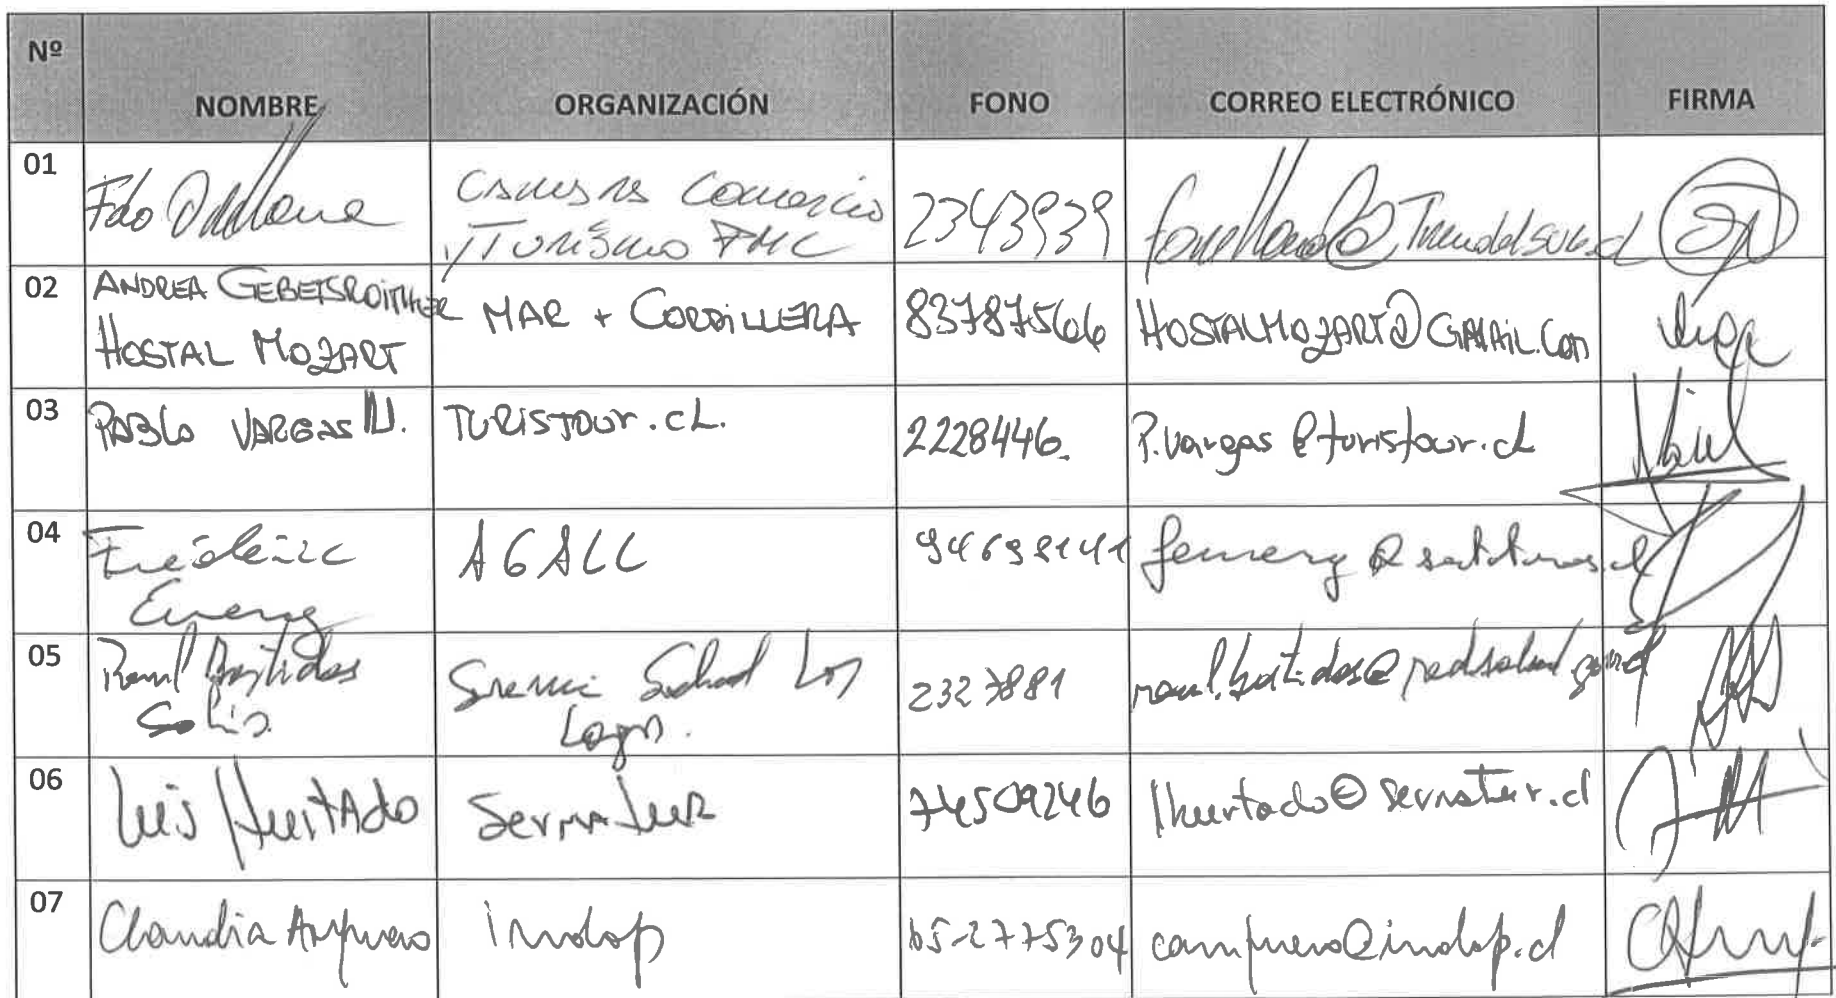 Nº NOMBRE ORGANIZACIÓN FONO CORREO ELECTRÓNICO FIRMA
01 Fdo Orellana Camara Comercio 2343939
y Turismo PMC
02 ANDREA GEBETSROITHER MAR + CORDILLERA 83787566 HOSTALMOZART@GMAIL.Com
HOSTAL MOZART
03 PABLO VARGAS TURISTOUR.CL. 2228446. P.vargas@turistour.cl
04 Frédéric AGALL 94698141
Emery
05 Raul Bastidas Seremi Salud Los 2327881 raul.bastidas@redsalud.gov.cl
Solis. Lagos.
06 Luis HurtAdo Sernatur 74509246 lhurtado@sernatur.cl
07 Claudia Ampuero Indap 65-2775304 campuero@indap.cl